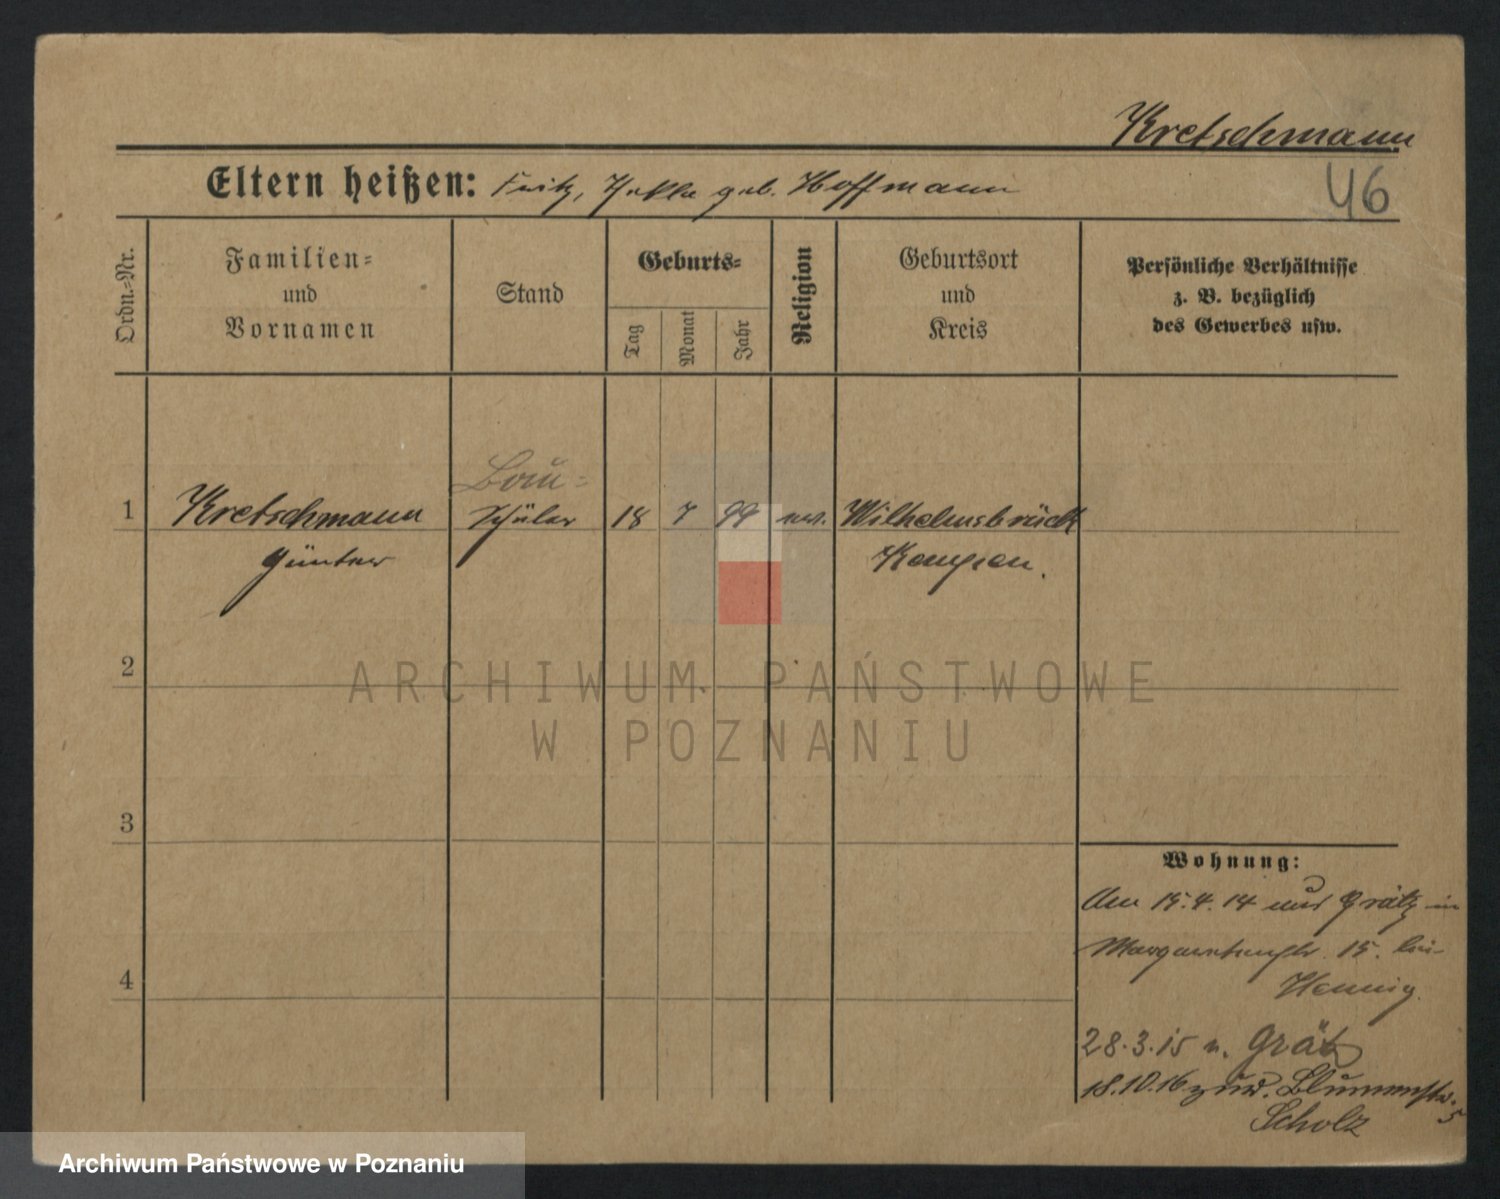 Kretschmann
46
Eltern heißen: Fritz, Hekla geb. Hoffmann
Ordn.-Nr.
Familien-
und
Vornamen
Stand
Geburts-
Tag
Monat
Jahr
Religion
Geburtsort
und
Kreis
Persönliche Verhältnisse
z. B. bezüglich
des Gewerbes usw.
Bau-
1 Kretschmann Schüler 18 7 99 ev. Wilhelmsbrück
Günter Kempen.
2
ARCHIWUM PAŃSTWOWE
W POZNANIU
3
Wohnung:
Am 15.4.14 aus Grätz in
Margaretenstr. 15. bei
4
Hennig.
28.3.15 n. Grätz
18.10.16 zur. Blumenstr. 5
Scholz
Archiwum Państwowe w Poznaniu